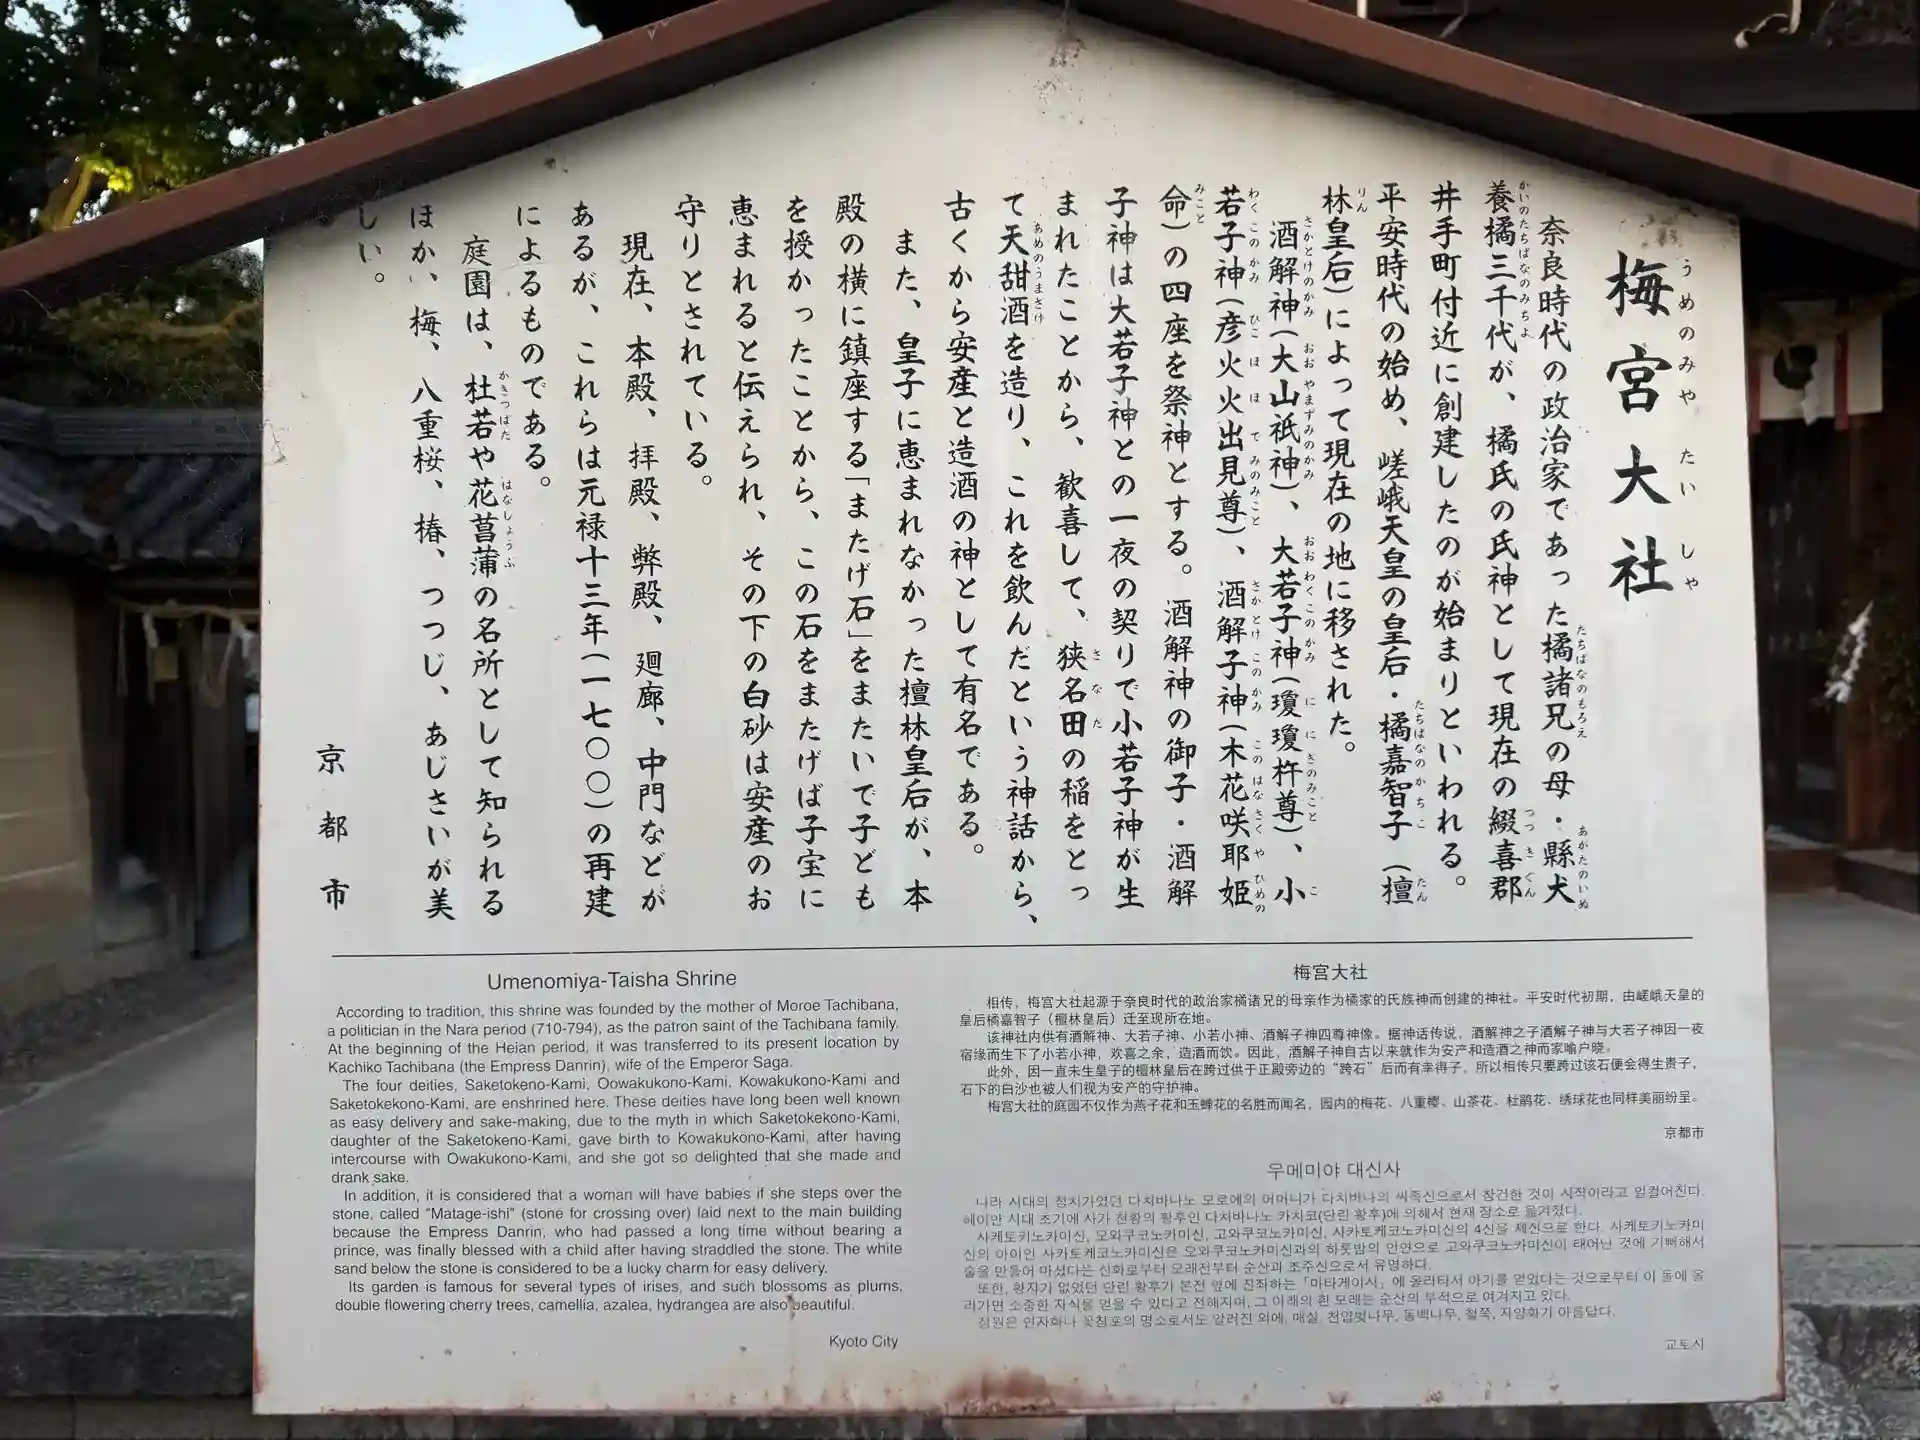 梅宮大社
うめのみや たい しゃ
奈良時代の政治家であった橘諸兄の母・縣犬
養橘三千代が、橘氏の氏神として現在の綴喜郡
井手町付近に創建したのが始まりといわれる。
平安時代の始め、嵯峨天皇の皇后・橘嘉智子(檀
林皇后)によって現在の地に移された。
酒解神(大山祇神)、大若子神(瓊瓊杵尊)、小
若子神(彦火火出見尊)、酒解子神(木花咲耶姫
命)の四座を祭神とする。酒解神の御子・酒解
子神は大若子神との一夜の契りで小若子神が生
まれたことから、歓喜して、狭名田の稲をとっ
て天甜酒を造り、これを飲んだという神話から、
古くから安産と造酒の神として有名である。
また、皇子に恵まれなかった檀林皇后が、本
殿の横に鎮座する「またげ石」をまたいで子ども
を授かったことから、この石をまたげば子宝に
恵まれると伝えられ、その下の白砂は安産のお
守りとされている。
現在、本殿、拝殿、弊殿、廻廊、中門などが
あるが、これらは元禄十三年(一七〇〇)の再建
によるものである。
庭園は、杜若や花菖蒲の名所として知られる
ほか、梅、八重桜、椿、つつじ、あじさいが美
しい。
京都市
Umenomiya-Taisha Shrine
According to tradition, this shrine was founded by the mother of Moroe Tachibana,
a politician in the Nara period (710-794), as the patron saint of the Tachibana family.
At the beginning of the Heian period, it was transferred to its present location by
Kachiko Tachibana (the Empress Danrin), wife of the Emperor Saga.
The four deities, Saketokeno-Kami, Oowakukono-Kami, Kowakukono-Kami and
Saketokekono-Kami, are enshrined here. These deities have long been well known
as easy delivery and sake-making, due to the myth in which Saketokekono-Kami,
daughter of the Saketokeno-Kami, gave birth to Kowakukono-Kami, after having
intercourse with Owakukono-Kami, and she got so delighted that she made and
drank sake.
In addition, it is considered that a woman will have babies if she steps over the
stone, called "Matage-ishi" (stone for crossing over) laid next to the main building
because the Empress Danrin, who had passed a long time without bearing a
prince, was finally blessed with a child after having straddled the stone. The white
sand below the stone is considered to be a lucky charm for easy delivery.
Its garden is famous for several types of irises, and such blossoms as plums,
double flowering cherry trees, camellia, azalea, hydrangea are also beautiful.
Kyoto City
梅宫大社
相传，梅宫大社起源于奈良时代的政治家橘诸兄的母亲作为橘家的氏族神而创建的神社。平安时代初期，由嵯峨天皇的
皇后橘嘉智子（檀林皇后）迁至现所在地。
该神社内供有酒解神、大若子神、小若小神、酒解子神四尊神像。据神话传说，酒解神之子酒解子神与大若子神因一夜
宿缘而生下了小若小神，欢喜之余，造酒而饮。因此，酒解子神自古以来就作为安产和造酒之神而家喻户晓。
此外，因一直未生皇子的檀林皇后在跨过供于正殿旁边的“跨石”后而有幸得子，所以相传只要跨过该石便会得生贵子，
石下的白沙也被人们视为安产的守护神。
梅宫大社的庭园不仅作为燕子花和玉蝉花的名胜而闻名，园内的梅花、八重樱、山茶花、杜鹃花、绣球花也同样美丽纷呈。
京都市
우메미야 대신사
나라 시대의 정치가였던 다치바나노 모로에의 어머니가 다치바나의 씨족신으로서 창건한 것이 시작이라고 일컬어진다.
헤이안 시대 초기에 사가 천황의 황후인 다치바나노 카치코(단린 황후)에 의해서 현재 장소로 옮겨졌다.
사케토키노카미신, 오와쿠코노카미신, 고와쿠코노카미신, 사카토케코노카미신의 4신을 제신으로 한다. 사케토키노카미
신의 아이인 사카토케코노카미신은 오와쿠코노카미신과의 하룻밤의 인연으로 고와쿠코노카미신이 태어난 것에 기뻐해서
술을 만들어 마셨다는 신화로부터 오래전부터 순산과 조주신으로서 유명하다.
또한, 황자가 없었던 단린 황후가 본전 옆에 진좌하는「마타게이시」에 올라타서 아기를 얻었다는 것으로부터 이 돌에 올
라가면 소중한 자식를 얻을 수 있다고 전해지며, 그 아래의 흰 모래는 순산의 부적으로 여겨지고 있다.
정원은 연자화나 꽃창포의 명소로서도 알려진 외에, 매실, 천엽벚나무, 동백나무, 철쭉, 자양화가 아름답다.
교토시